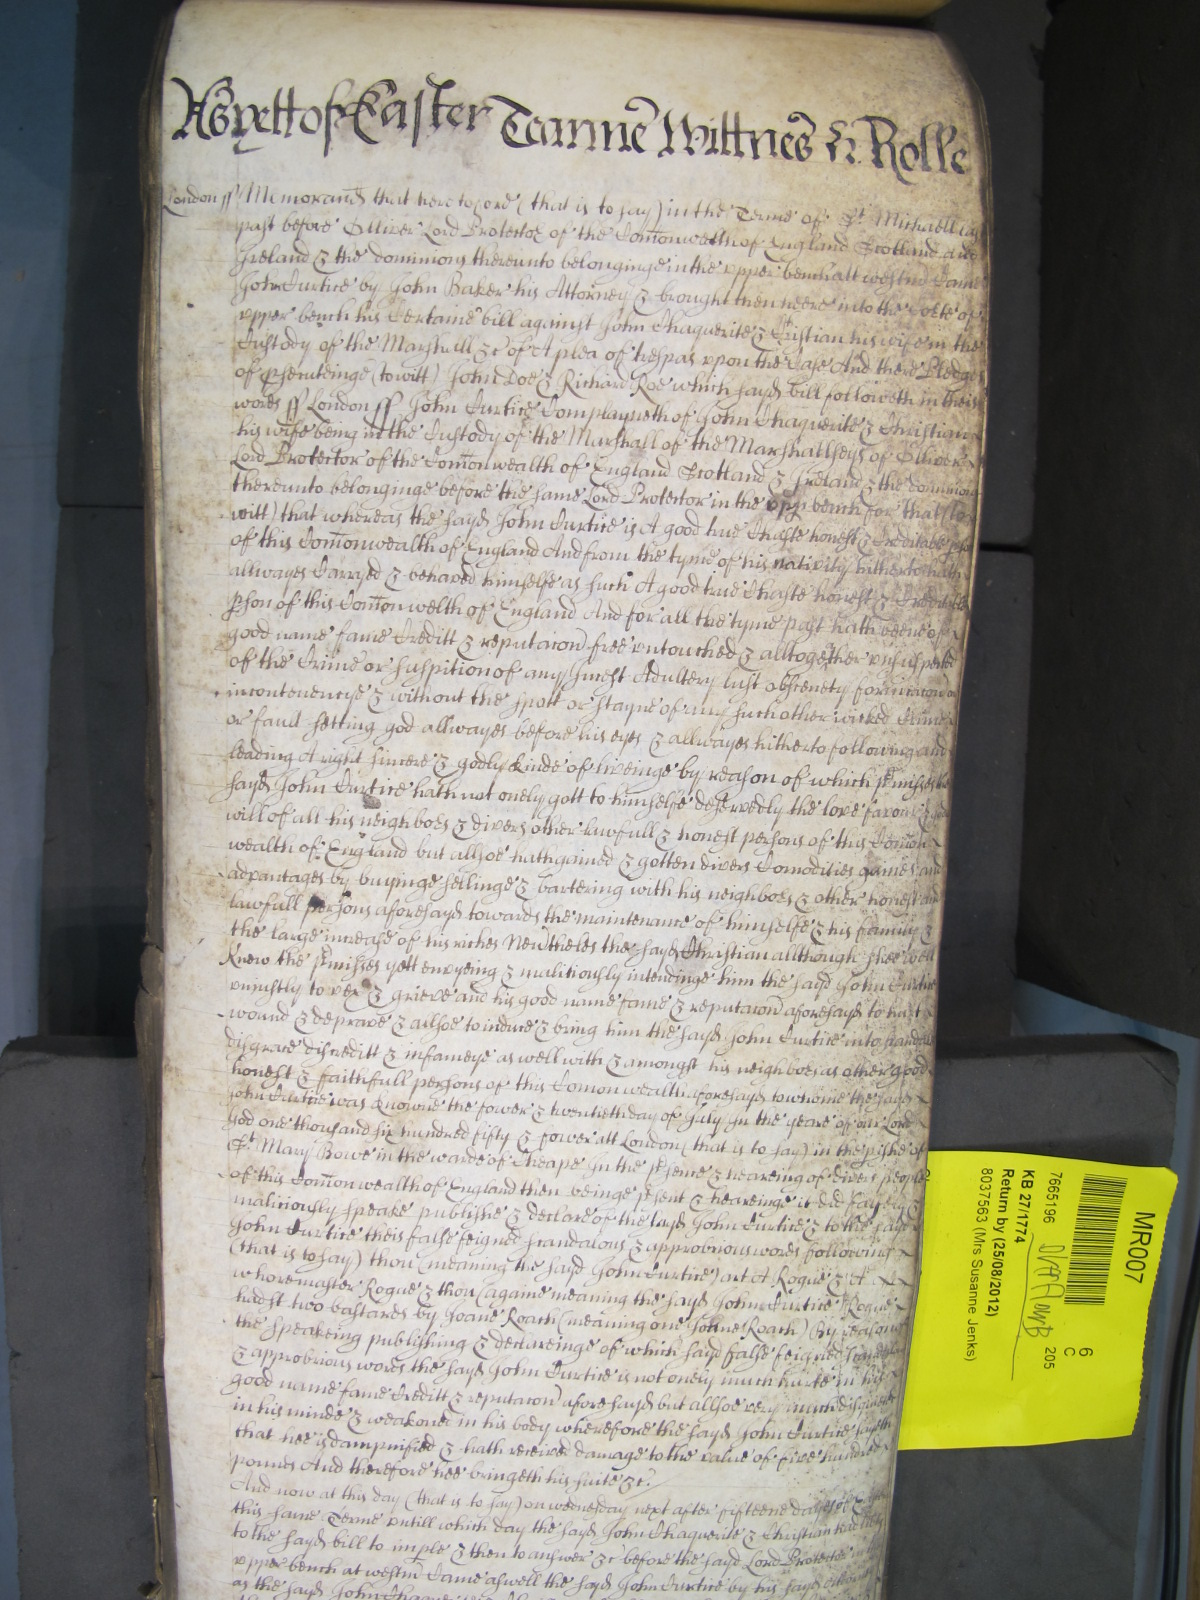 As yett of Easter Tearme Wittnes H: Rolle
London ss Memorand that heretofore (that is to say) in the Terme of St Michaell last
past before Olliver Lord Protector of the Comonwealth of England Scotland and
Ireland & the dominions thereunto belonginge in the upper bench att westmr Came
John Curtice by John Baker his Attorney & brought then heere into the Corte of
upper bench his Certaine bill against John Chaguerite & Cristian his wife in the
Custody of the Marshall &c of A plea of trespas upon the Case And there Pledges
of psecuteinge (to witt) John Doe & Richard Roe which sayd bill followeth in theis
words ss London ss John Curtice Complayneth of John Chaguerite & Christian
his wife being in the Custody of the Marshall of the Marshallseys of Olliver
Lord Protector of the Comonwealth of England Scotland & Ireland & the dominions
thereunto belonginge before the same Lord Protector in the upp bench for that (to
witt) that whereas the sayd John Curtice is A good true Chaste honest & Creditable pson
of this Comonwealth of England And from the tyme of his nativity hitherto hath
allwayes Carryed & behaved himselfe as such A good true Chaste honest & Creditable
pson of this Comonwelth of England And for all the tyme past hath beene of
good name fame Creditt & reputacon free untouched & alltogether unsuspected
of the Crime or suspition of any Incest Adultery lust obscenety fornicacon or
incontenencye & without the spott or stayne of any such other wicked Crime
or fault setting god allwayes before his eyes & allwayes hitherto following and
leading A right sincere & godly kinde of liveinge by reason of which pmisses the
sayd John Curtice hath not onely gott to himselfe deservedly the love favour & good
will of all his neighboes & divers other lawfull & honest persons of this Comon
wealth of England but allsoe hath gained & gotten divers Comodities gaines and
advantages by buyinge sellinge & bartering with his neighboes & other honest and
lawfull persons aforesayd towards the maintenance of himselfe & his family &
the large increase of his riches Nevtheles the sayd Christian allthough shee well
knew the pmisses yett envyeing & malitiously intendinge him the sayd John Curtice
uniustly to vex & grieve and his good name fame & reputacon aforesayd to hurt
wound & deprave & allsoe to induce & bring him the sayd John Curtice into scandall
disgrace discreditt & infameye as well with & amongst his neighboes as other good
honest & faithfull persons of this Comonwealth aforesayd to whome the sayd
John Curtice was knowne the fower & twentieth day of July In the yeare of our Lord
god one thousand six hundred fifty & fower att London (that is to say) in the pishe of
St Mary Bowe in the warde of Cheape In the psence & heareing of divers people
of this Comonwealth of England then beinge psent & heareinge it did falsly &
malitiously speake publishe & declare of the sayd John Curtice & to the sayd
John Curtice theis false feigned scandalous & approbrious words following
(that is to say) thou (meaning the sayd John Curtice) art A Rogue & A
whoremaster Rogue & thou (againe meaning the sayd John Curtice) Rogue
hadst two bastards by Joane Roach (meaning one Johne Roach) By reason of
the speakeing publishing & declareinge of which sayd false feigned scandalous
& approbrious words the sayd John Curtice is not onely much hurte in his
good name fame Creditt & reputacon aforesayd but allsoe very much disquieted
in his minde & weakoned in his body wherefore the sayd John Curtice sayeth
that hee is dampnified & hath received damage to the value of five hundred
pounes And therefore hee bringeth his suite &c
And now at this day (that is to say) on wednesday next after fifteene dayes of Easter
this same Terme untill which day the sayd John Chaguerite & Christian had liberty
to the sayd bill to imple & then to answer &c before the sayd Lord Protector in the
upper bench at westm Came aswell the sayd John Curtice by his sayd Attorney
as the sayd John Chaguerite
MR007
6
C
205
7665196
KB 27/1774
Return by (25/08/2012)
8037563 (Mrs Susanne Jenks)